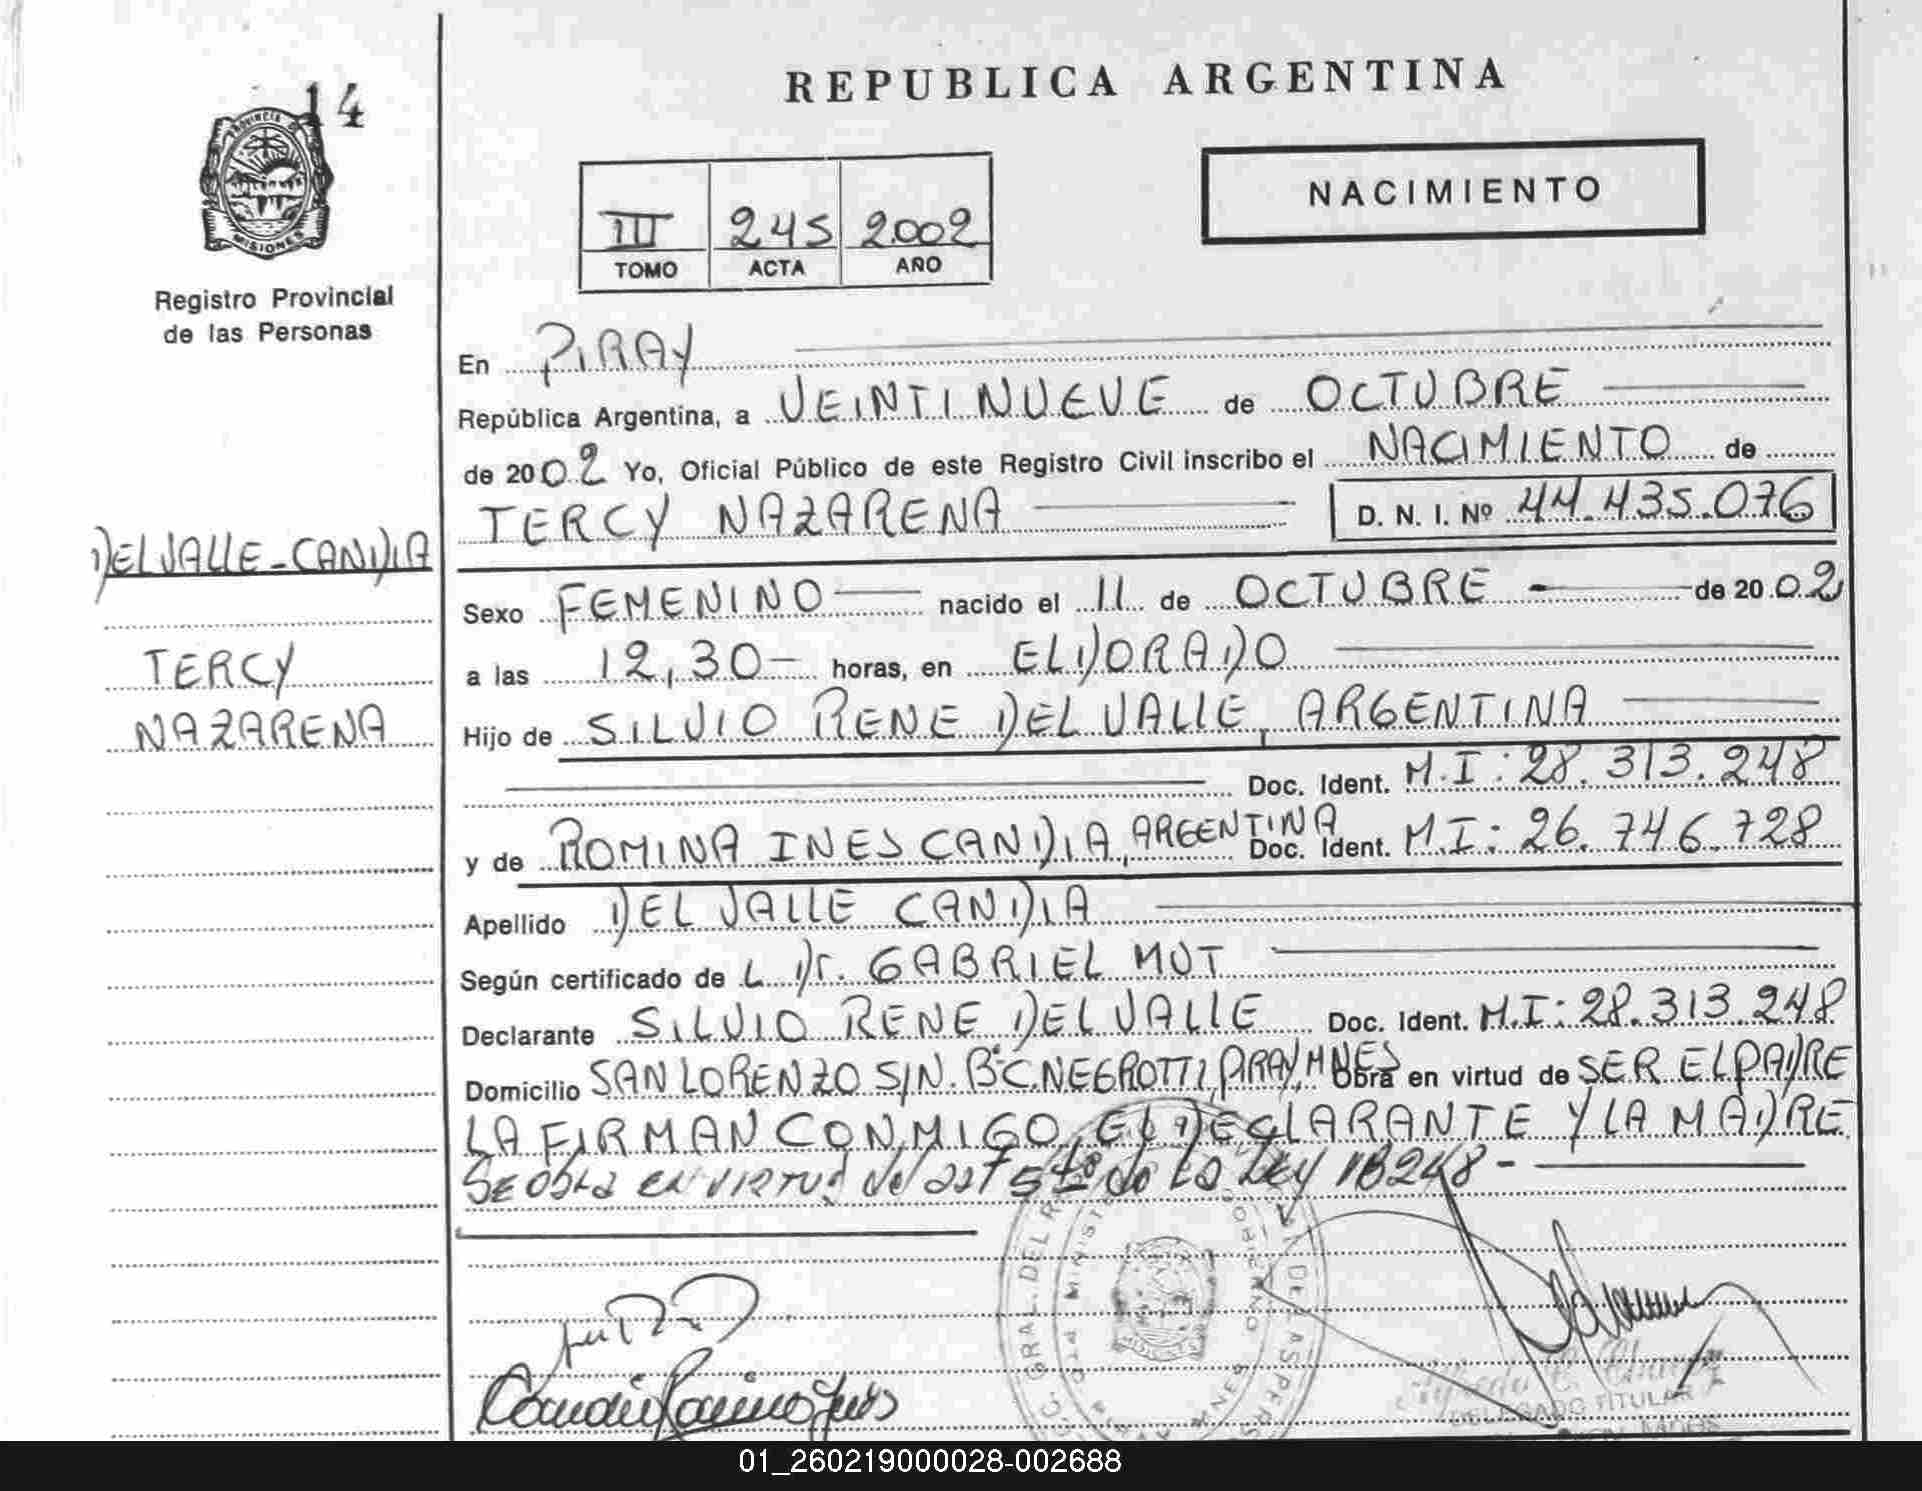 14
PROVINCIA DE
MISIONES
Registro Provincial
de las Personas
REPUBLICA ARGENTINA
III 245 2002
TOMO ACTA AÑO
NACIMIENTO
En PIRAY
República Argentina, a VEINTINUEVE de OCTUBRE
de 2002 Yo, Oficial Público de este Registro Civil inscribo el NACIMIENTO de
TERCY NAZARENA D. N. I. Nº 44.435.076
DEL VALLE-CANDIA
TERCY
NAZARENA
Sexo FEMENINO nacido el 11 de OCTUBRE de 2002
a las 12,30- horas, en ELDORADO
Hijo de SILVIO RENE DEL VALLE, ARGENTINA
Doc. Ident. M.I: 28.313.248
y de ROMINA INES CANDIA, ARGENTINA Doc. Ident. M.I: 26.746.728
Apellido DEL VALLE CANDIA
Según certificado de L Dr. GABRIEL MUT
Declarante SILVIO RENE DEL VALLE Doc. Ident. M.I: 28.313.248
Domicilio SAN LORENZO S/N. Bº C. NEGROTTI, PIRAY, MNES Obra en virtud de SER EL PADRE
LA FIRMAN CONMIGO, EL DECLARANTE Y LA MADRE
Se obra en virtud del art 5to de la Ley 18248-
Candia Romina Ines
DELEGADO TITULAR
01_260219000028-002688